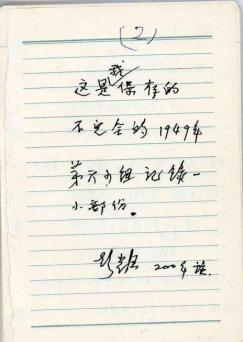 (2)
这是我保存的
不完全的1949年
第六小组记录一
小部份。
2000年